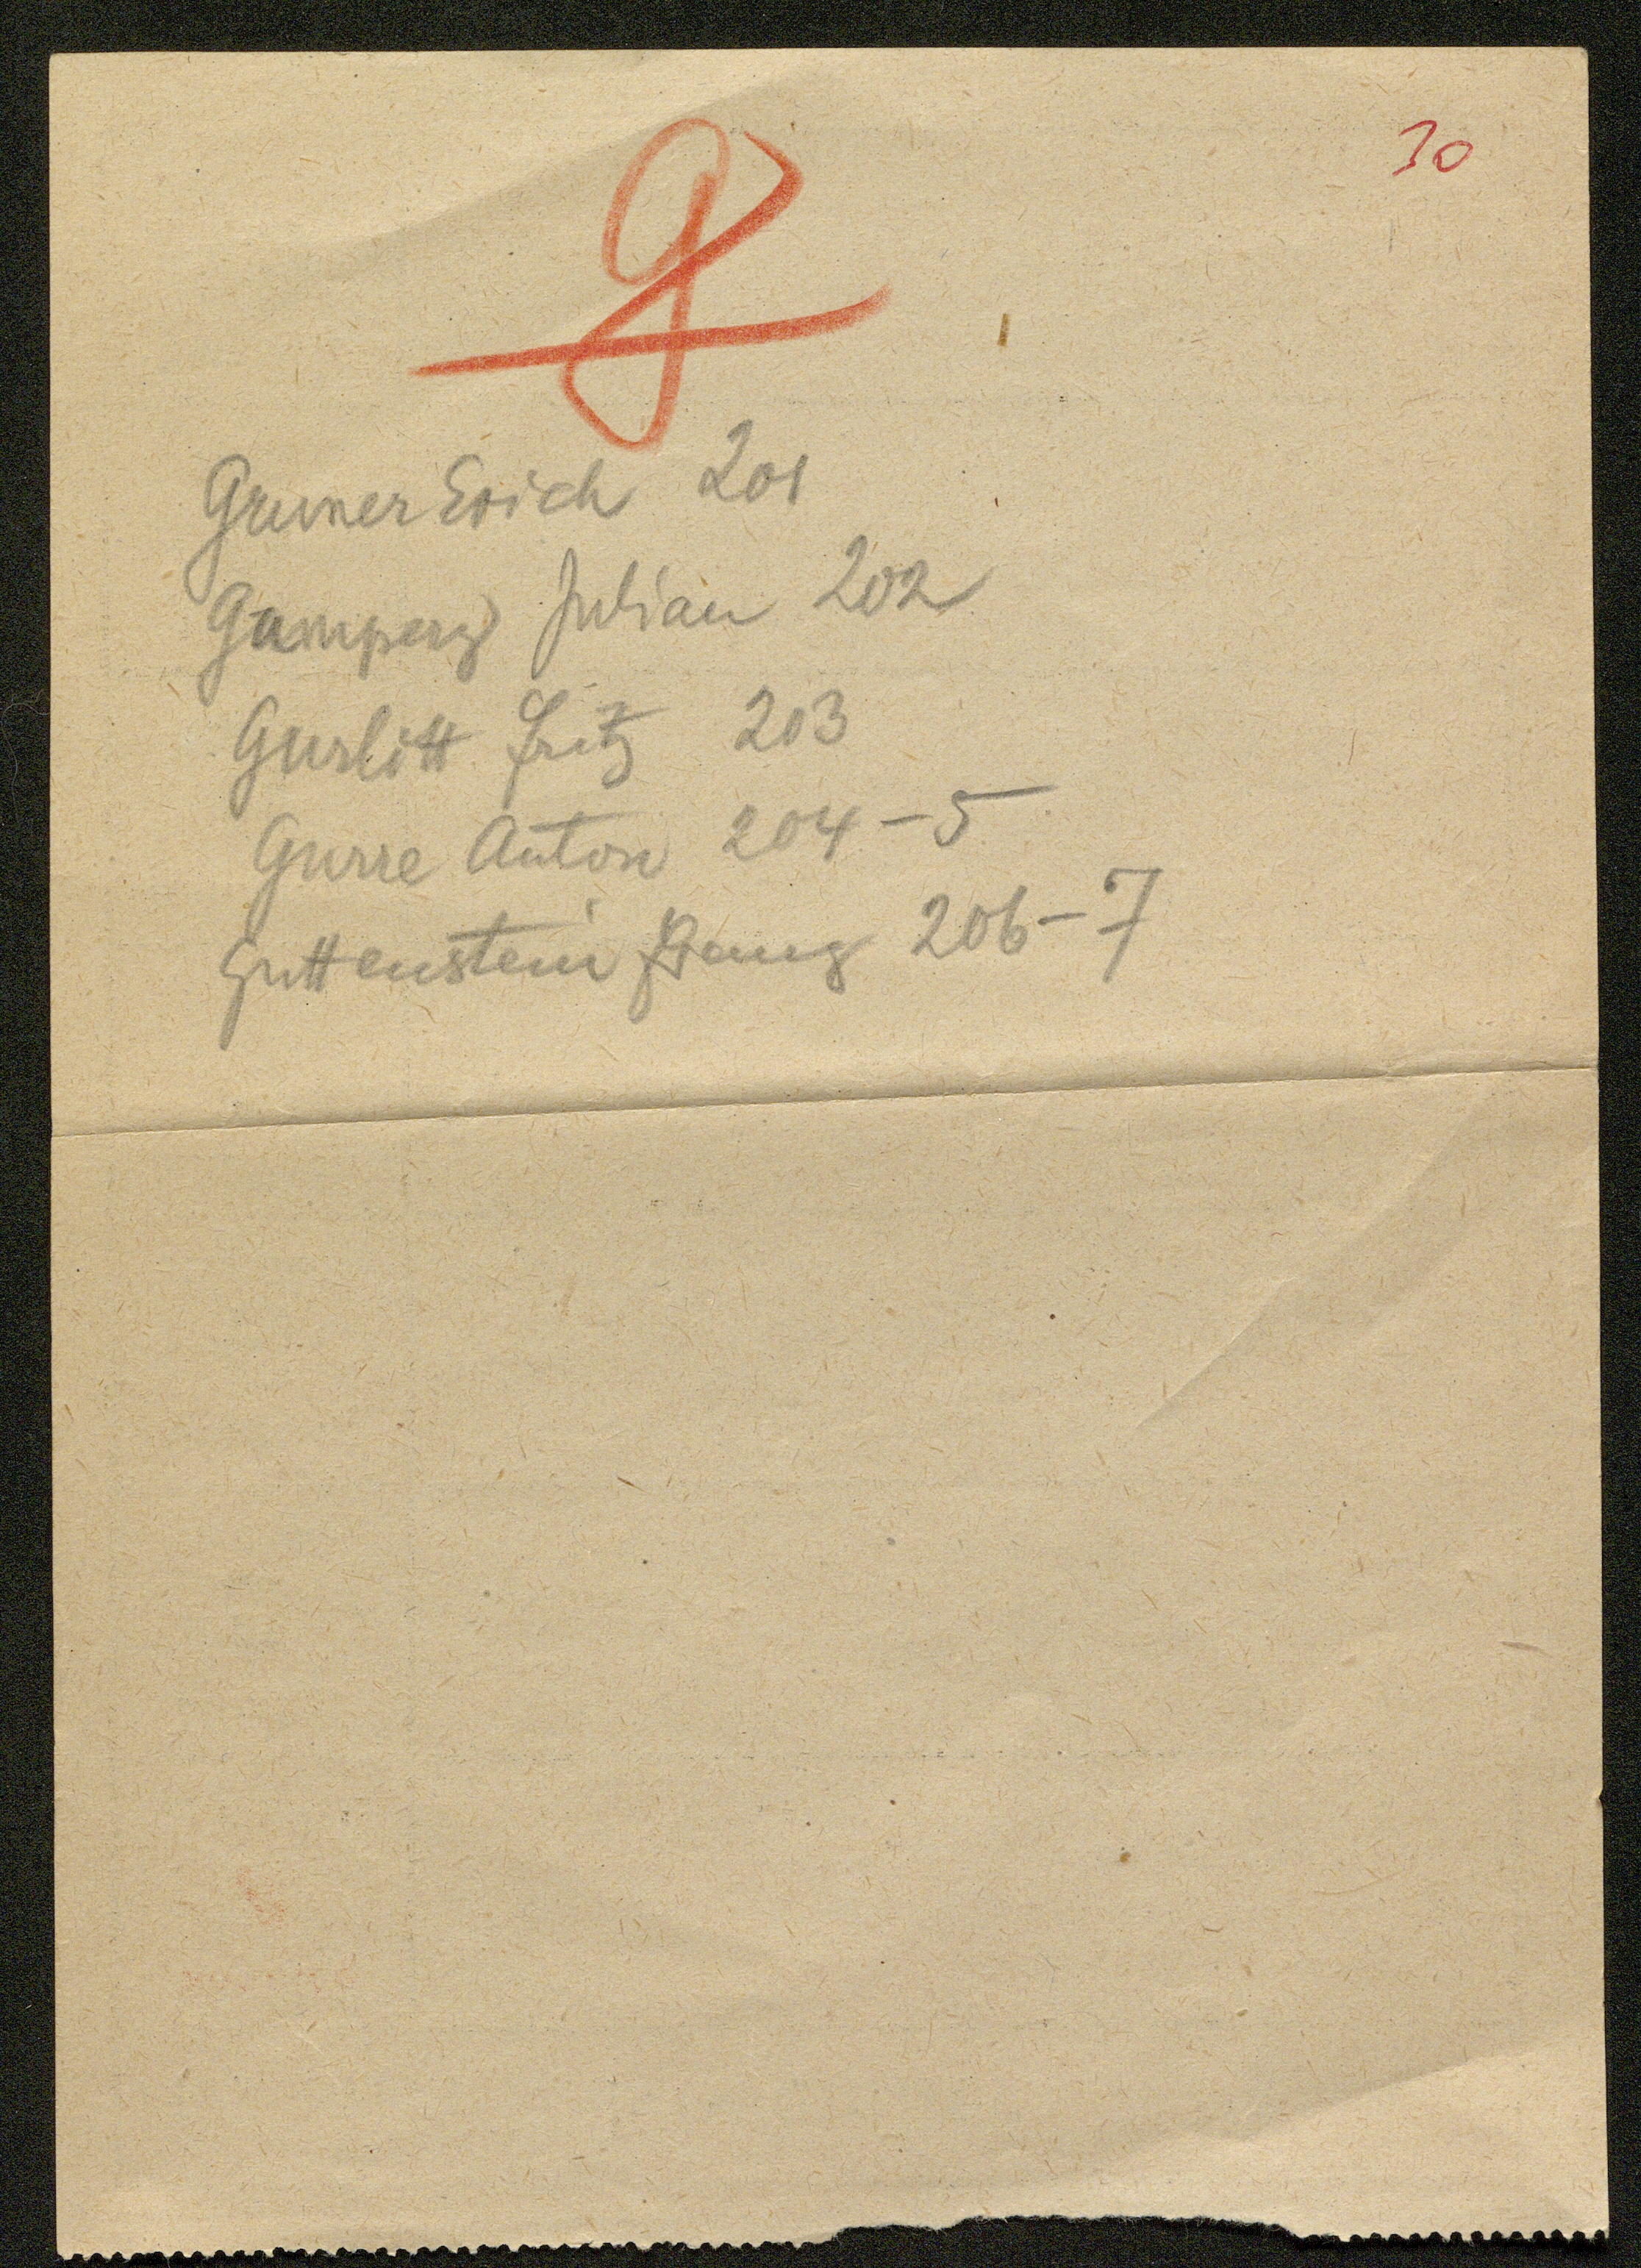 30
G
Gruner Erich 201
Julian 202
Gurlitt Fritz 203
Gurre Anton 204-5
Guttenstein Franz 206-7